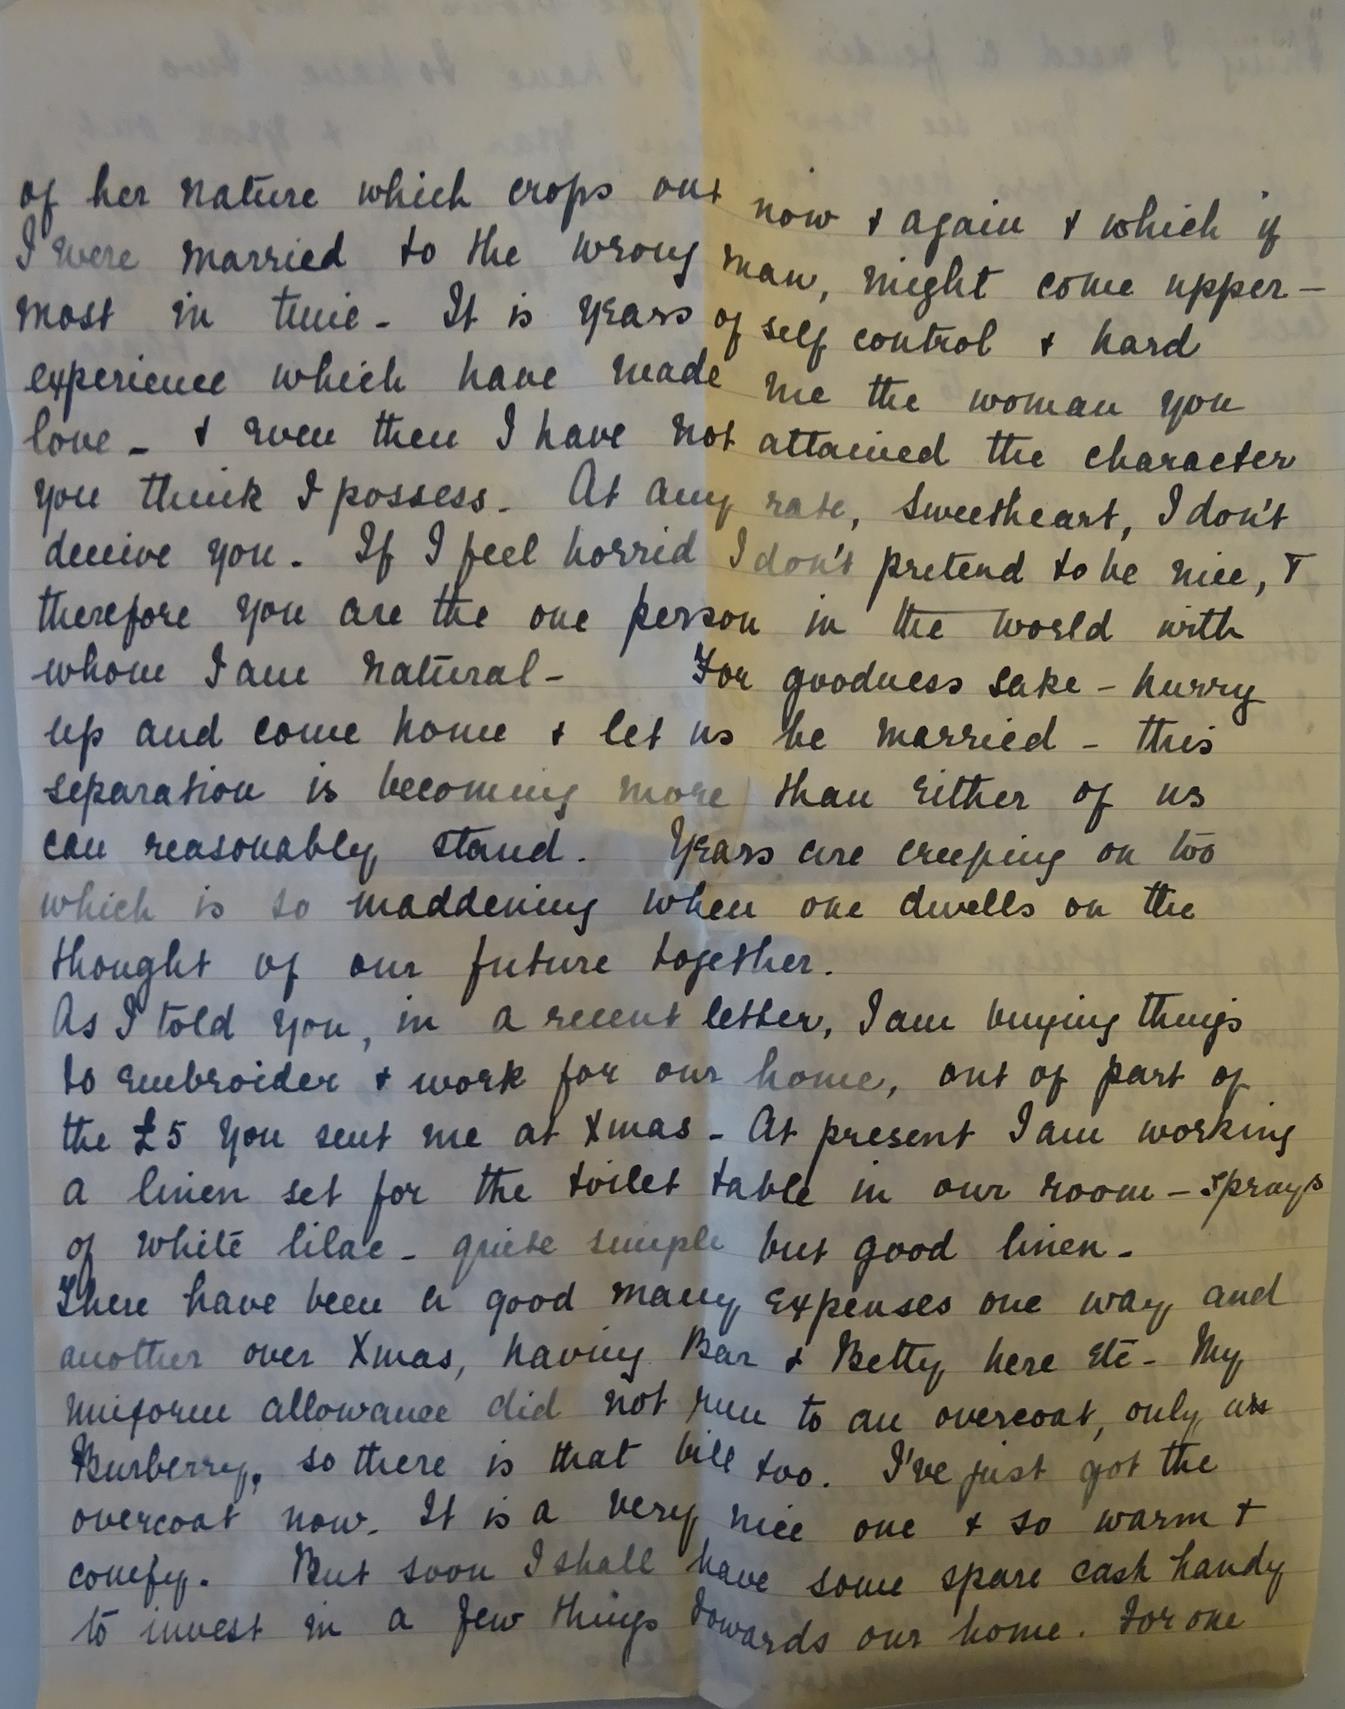 of her nature which crops out now & again & which if
I were married to the wrong man, might come upper-
most in time - It is years of self control & hard
experience which have made me the woman you
love - & even then I have not attained the character
you think I possess. At any rate, sweetheart, I don't
deceive you. If I feel horrid I don't pretend to be nice, &
therefore you are the one person in the world with
whom I am natural - For goodness sake - hurry
up and come home & let us be married - this
separation is becoming more than either of us
can reasonably stand. Years are creeping on too
which is so maddening when one dwells on the
thought of our future together.
As I told you, in a recent letter, I am buying things
to embroider & work for our home, out of part of
the £5 you sent me at Xmas - At present I am working
a linen set for the toilet table in our room - sprays
of white lilac - quite simple but good linen -
There have been a good many expenses one way and
another over Xmas, having Bar & Betty here etc - My
uniform allowance did not run to an overcoat, only
Burberry, so there is that bill too. I've just got the
overcoat now. It is a very nice one & so warm &
comfy. But soon I shall have some spare cash handy
to invest in a few things towards our home. For one